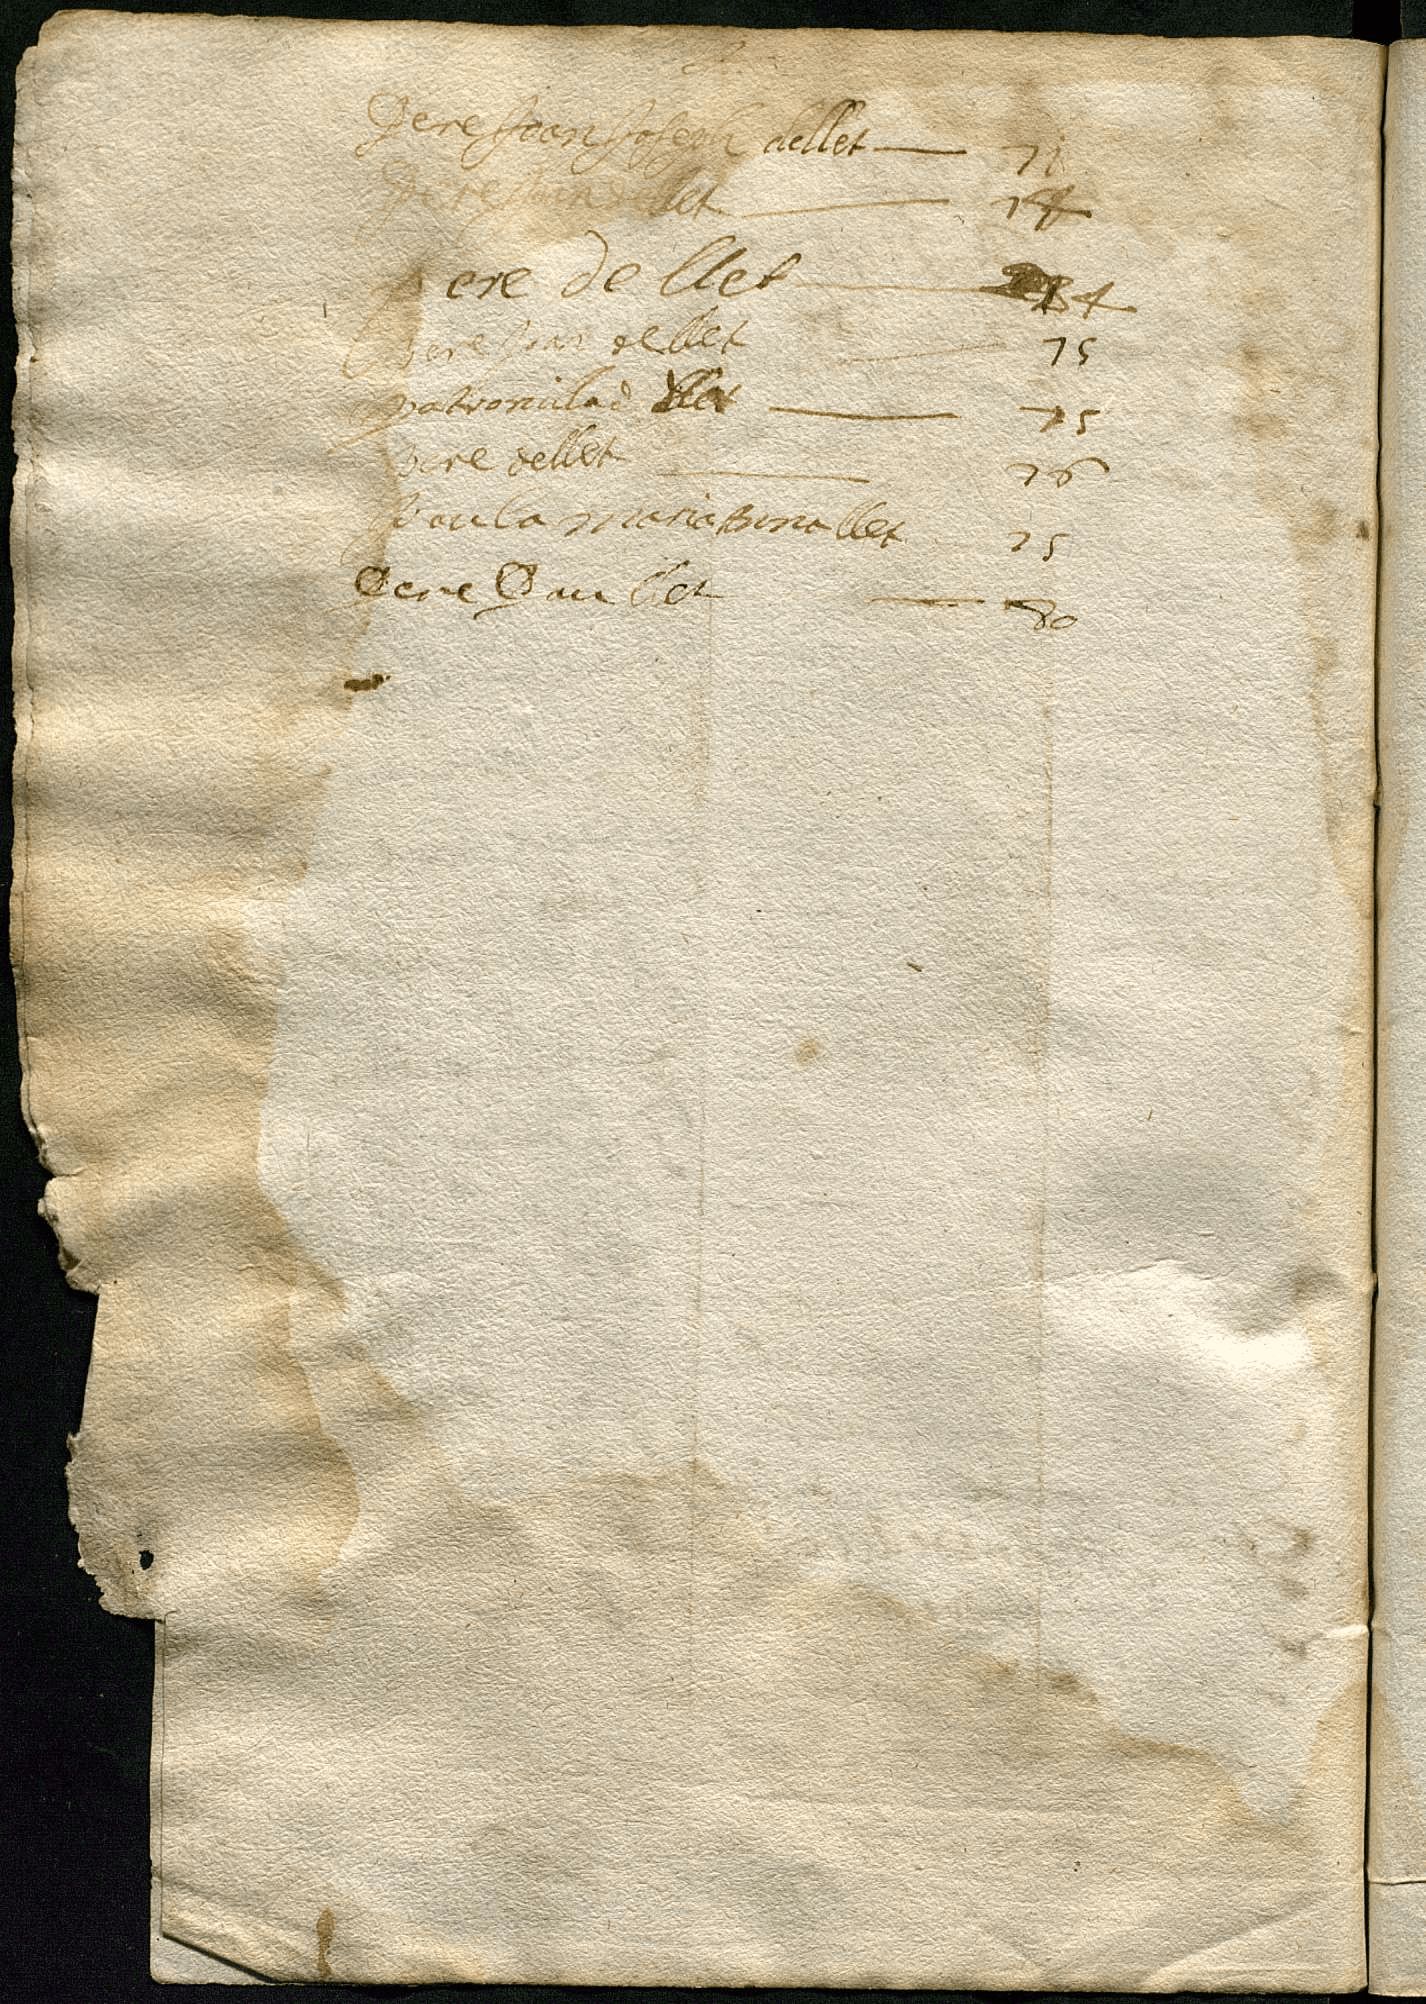 Pere Joan Joseph dellet — 71
Pere Juan dellet — 74
Pere de llet — 84
Pere Juan dellet — 75
patronila d llet — 75
Pere dellet — 76
Paula maria Bona llet 75
Pere Pau llet — 80